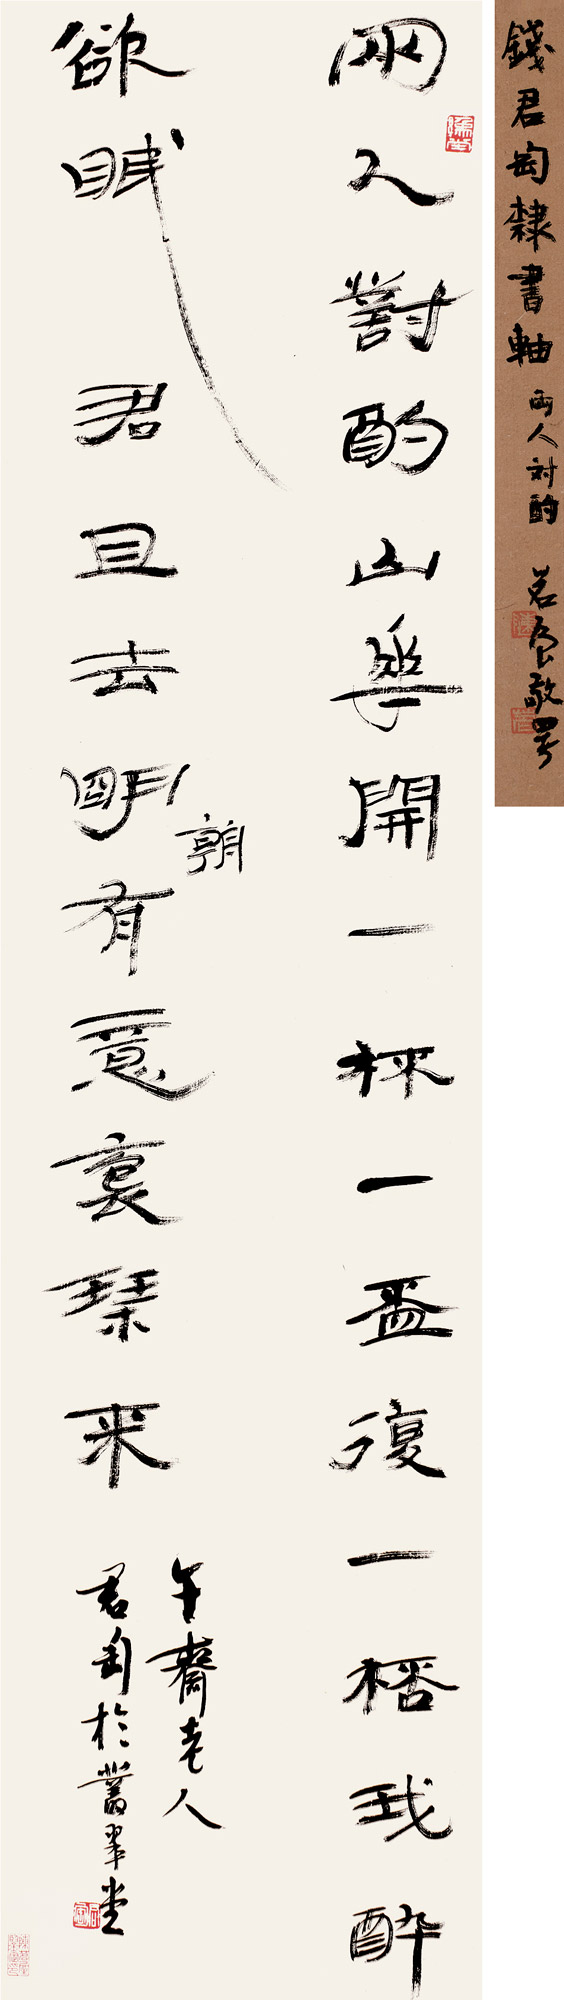 錢君匋隸書軸 兩人対酌 茗屋敬署
兩人對酌山華開一杯一盃復一桮我醉
欲眠君且去明有意袌琹来
朝
午齋老人
君匋於叢翠堂